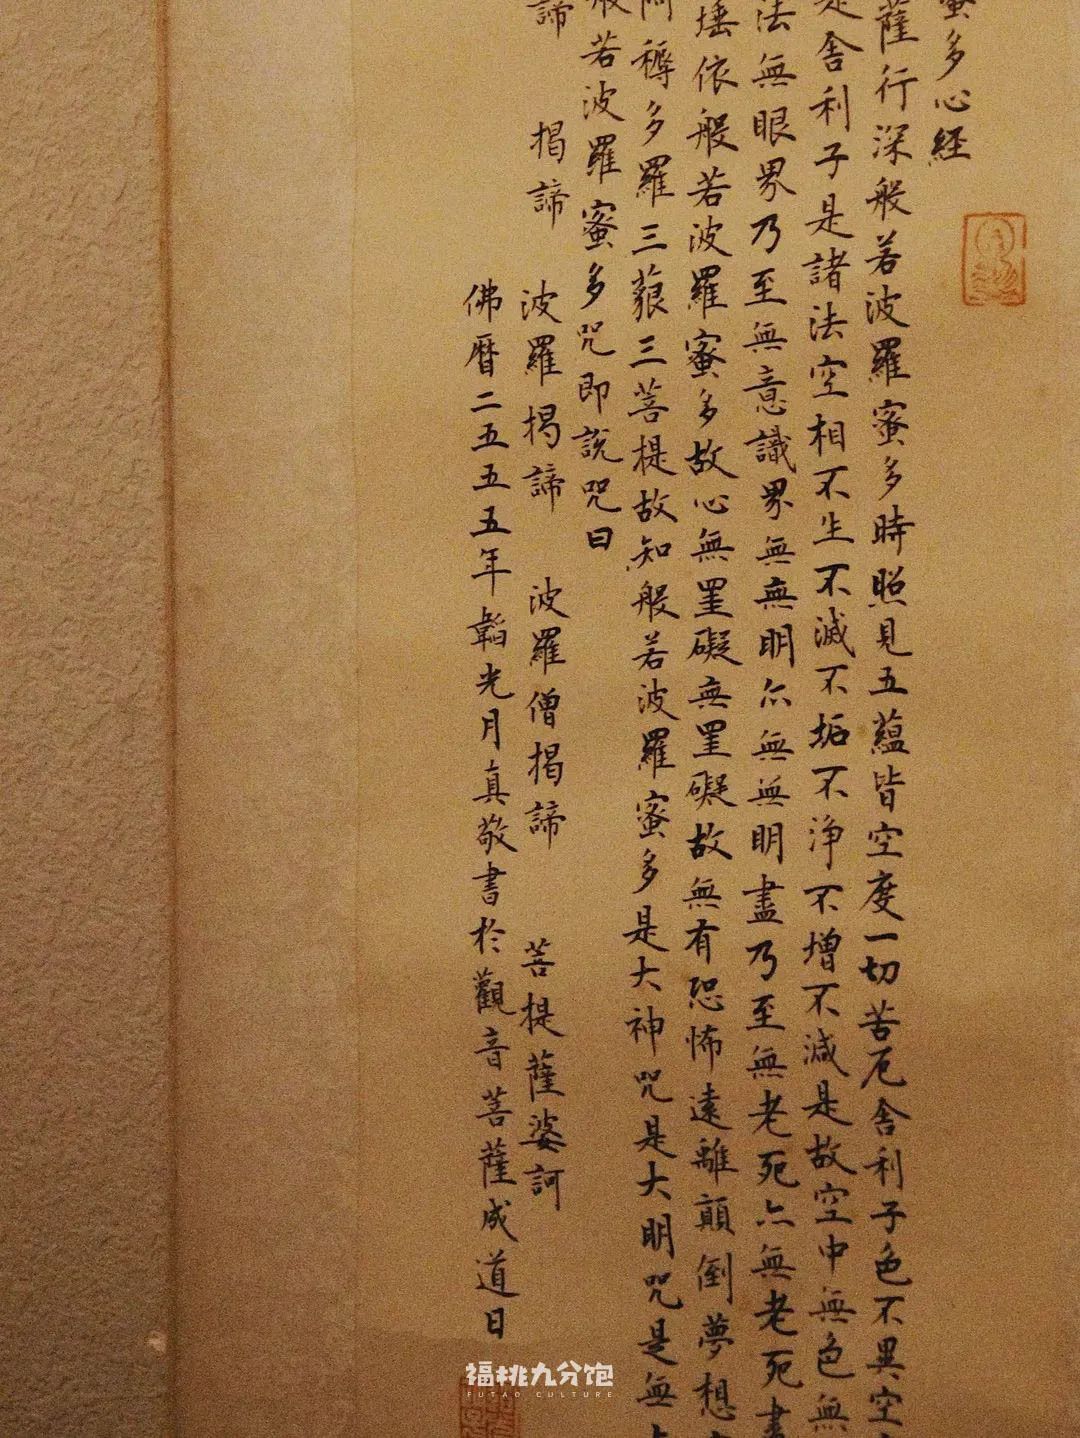 蜜多心經
薩行深般若波羅蜜多時照見五蘊皆空度一切苦厄舍利子色不異空
是舍利子是諸法空相不生不滅不垢不淨不增不減是故空中無色無
法無眼界乃至無意識界無無明亦無無明盡乃至無老死亦無老死盡
埵依般若波羅蜜多故心無罣礙無罣礙故無有恐怖遠離顛倒夢想
阿耨多羅三藐三菩提故知般若波羅蜜多是大神咒是大明咒是無上
般若波羅蜜多咒即說咒曰
諦 揭諦 波羅揭諦 波羅僧揭諦 菩提薩婆訶
佛曆二五五五年韜光月真敬書於觀音菩薩成道日
福桃九分饱
FUTAO CULTURE